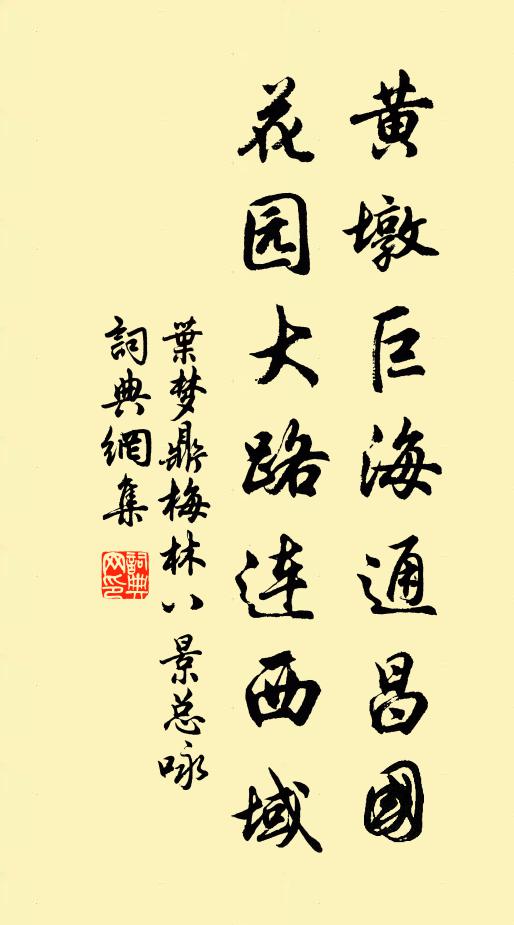 黄墩巨海通昌國
花园大路连西域
葉梦鼎梅林八景总咏
詞典網集
詞典网印